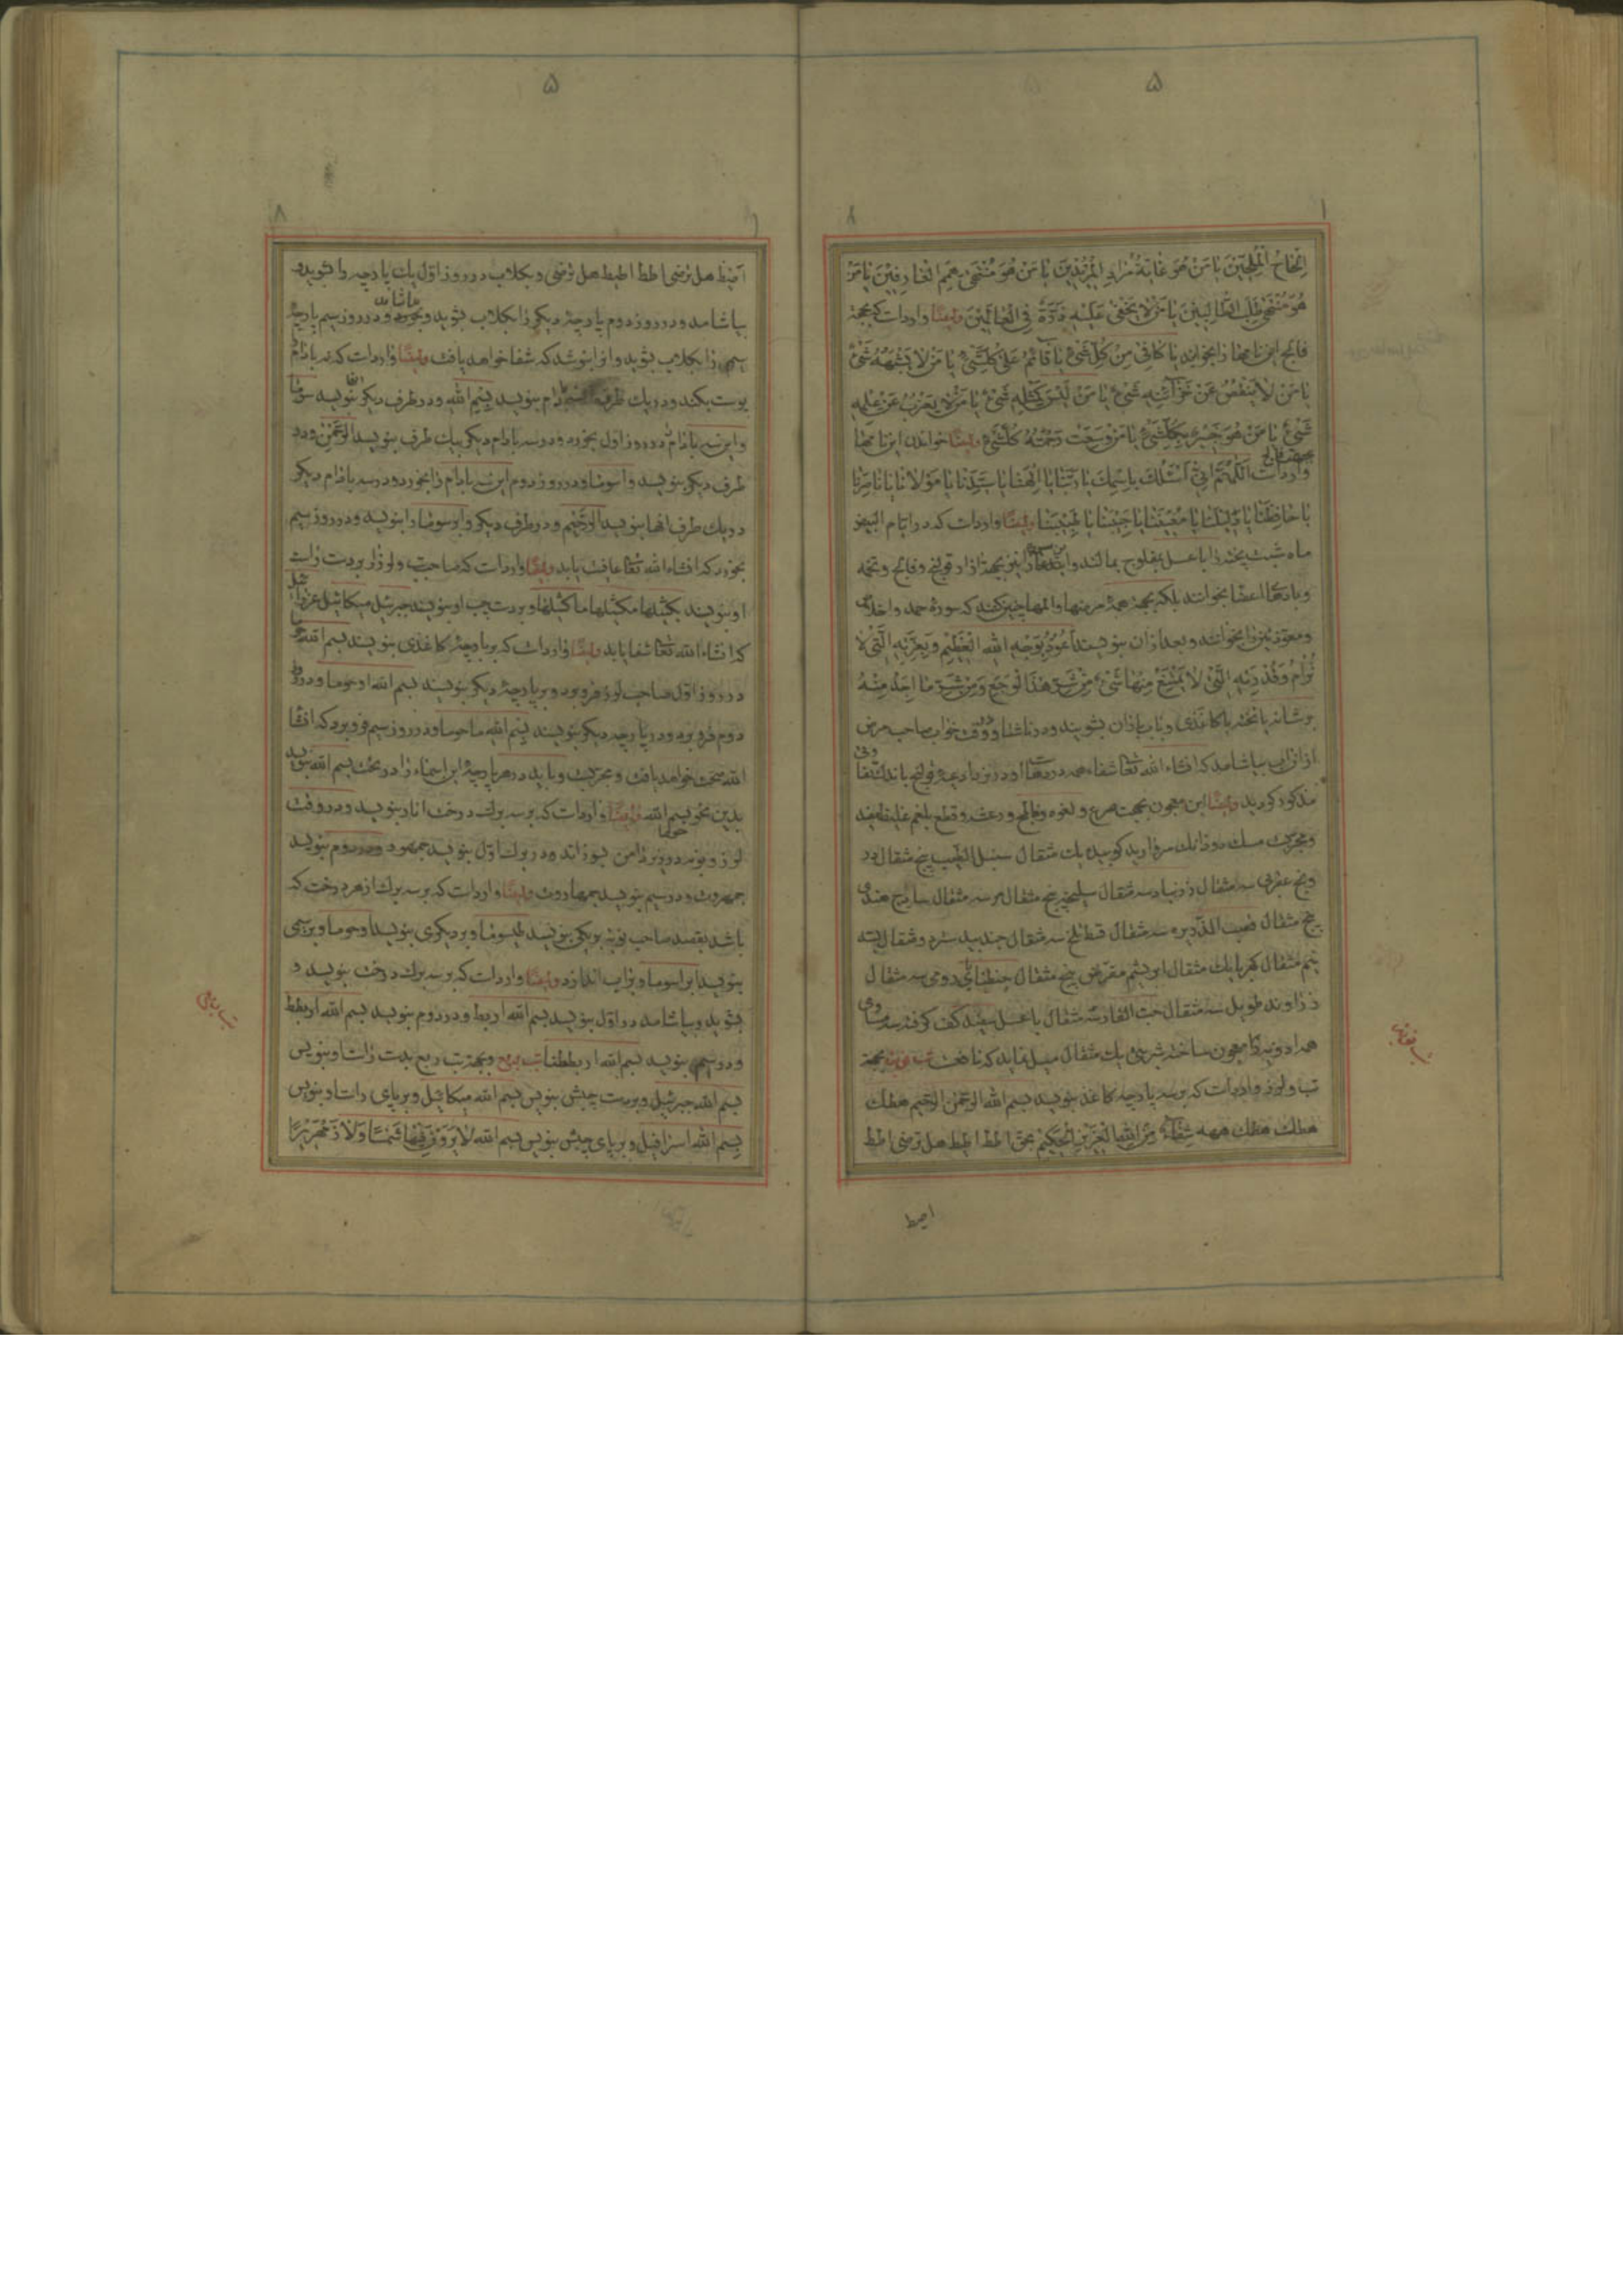 ۵
اِلْحاحُ الْمُلِحّینَ یا مَنْ هُوَ غایَةُ مُرادِ الْمُریدینَ یا مَنْ هُوَ مُنْتَهی هِمَمِ الْعارِفینَ یا مَنْ
هُوَ مُنْتَهی طَلَبِ الطّالِبینَ یا مَنْ لا یَخْفی عَلَیْهِ ذَرَّةٌ فِی الْعالَمینَ وایضًا وارد است که بجهة
فالج این نامها را بخوانید یا کافِی مِنْ کُلِّ شَیْءٍ یا قآئِمُ عَلی کُلِّ شَیْءٍ یا مَنْ لا یُشْبِهُهُ شَیْءٌ
یا مَنْ لا یَنْقُصُ عَنْ خَزآئِنِهِ شَیْءٌ یا مَنْ لَیْسَ کَمِثْلِهِ شَیْءٌ یا مَنْ لا یَعْزُبُ عَنْ عِلْمِهِ
شَیْءٌ یا مَنْ هُوَ خَبیرٌ بِکُلِّ شَیْءٍ یا مَنْ وَسِعَتْ رَحْمَتُهُ کُلَّ شَیْءٍ وایضًا خواندن این نامها
بجهة فالج وارد است اَللّهُمَّ اِنّی اَسْئَلُکَ بِاسْمِکَ یا رَبَّنا یا اِلهَنا یا سَیِّدَنا یا مَوْلانا یا ناصِرَنا
یا حافِظَنا یا دَلیلَنا یا مُعینَنا یا حَبیبَنا یا طَبیبَنا وایضًا وارد است که در ایام البیض
ماه شبت پخته را با عسل بمفلوج بمالند و
و بادهای اعضا بخوانند بلکه بجهة همه مرضها و المها چنین کنند که سوره حمد و اخلاص
و معوذتین را بخوانند و بعد از آن بنویسند اَعُوذُ بِوَجْهِ اللهِ الْعَظیمِ وَ بِعِزَّتِهِ الَّتی لا
تُرامُ وَ قُدْرَتِهِ الَّتی لا یَمْتَنِعُ مِنْها شَیْءٌ مِنْ شَرِّ هذَا الْوَجَعِ وَ مِنْ شَرِّ ما اَجِدُ مِنْهُ
بر شانه یا تخته یا کاغذی و بآب باران بشویند و در ناشتا و وقت خواب صاحب مرض
از آن آب بیاشامد که انشاء الله تعا شفاء همه دردها
مذکور کردید وایضًا این معجون بجهت صرع و لقوه و فالج و رعشه و قطع بلغم غلیظ مفید
و مجربست مسک دو دانک مروارید کوبیده یک مثقال سنبل الطیب پنج مثقال
سه مثقال زرنباد سه مثقال سلیخه پنج مثقال سه مثقال ساذج هندی
پنج مثقال قصب الذریره سه مثقال قسط تلخ سه مثقال جندبیدستر دو مثقال
مثقال کهربا یک مثقال ابریشم مقرض پنج مثقال جنطیانای رومی سه مثقال
زراوند طویل سه مثقال حب الغار سه مثقال با عسل سفید کف کرفته
همه ادویه را معجون ساخته شربتی یک مثقال میل نماید که نافعست تب نوبه بجهة
تب و لرز وارد است که بر سه پارچه کاغذ بنویسید بسم الله الرحمن الرحیم هطلک
هطلک هطلک شِفآءٌ مِنَ اللهِ الْعَزیزِ الْحَکیمِ بحق اطط اطیط هل ترضی اطط
۵
اطیط هل ترضی اطط اطیط هل ترضی و بکلاب در روز اول یک پارچه را بشوید و
بیاشامد و در روز دوم پارچه دیگر را بکلاب بشوید و بخورد و در روز سیم پارچه
سیم را بکلاب بشوید و او را بنوشد که شفا خواهد یافت وایضًا وارد است که نه بادام
پوست بکند و در یک طرف بادام بنویسد بِسْمِ اللهِ و در طرف دیگر بنویسد
و این سه بادام را در روز اول بخورد و در سه بادام دیگر بیک طرف بنویسد الرَّحْمن و در
طرف دیگر بنویسد و اسوما و در روز دوم این سه بادام را بخورد و در سه بادام دیگر
در یک طرف آنها بنویسد الرَّحیم و در طرف دیگر و ابرسوما را بنویسد و در روز سیم
بخورد که انشاء الله تعا عافیت یابد وایضًا وارد است که صاحب تب و لرز را بر دست راست
او بنویسند و بر دست چپ او بنویسند جبرئیل میکائیل عزرائیل
که انشاء الله تعا شفا یابد وایضًا وارد است که بر پارچه کاغذی بنویسند بسم الله
در روز اول صاحب لرز فرو برد و بر پارچه دیگر بنویسند بسم الله اوحوما و در روز
دوم فرو برد و در پارچه دیگر بنویسند بِسْمِ اللهِ ماحوسا و در روز سیم فرو برد که انشا
الله صحت خواهد یافت و مجربست و باید در هر پارچه این اسماء را در تحت بسم الله بنویسد
بدین نحو بسم الله وایضًا وارد است که بر سه برک درخت انار بنویسد و در وقت
در برک اول بنویسد جمهود و در دوم بنویسد
جمهروت و در سیم بنویسد جمهاروت وایضًا وارد است که بر سه برک از هر درخت که
باشد بقصد صاحب نوبه بر یکی بنویسد طیسوما و بر دیگری بنویسد اوحوما و بر سیمی
بنویسد ابراسوما و بر آب اندازد وایضًا وارد است که بر سه برک درخت بنویسد و
بشوید و بیاشامد در اول بنویسد بسم الله اربط و در دوم بنویسد بسم الله اربطط
و در سیم بنویسد بسم الله اربططنا تب ربع و بجهة تب ربع بدست راست او بنویس
بسم الله جبرئیل و بر دست چپش بنویس بسم الله میکائیل و بر پای راست او بنویس
بسم الله اسرافیل و بر پای چپش بنویس بسم الله لا یَرَوْنَ فیها شَمْسًا وَلا زَمْهَریرًا